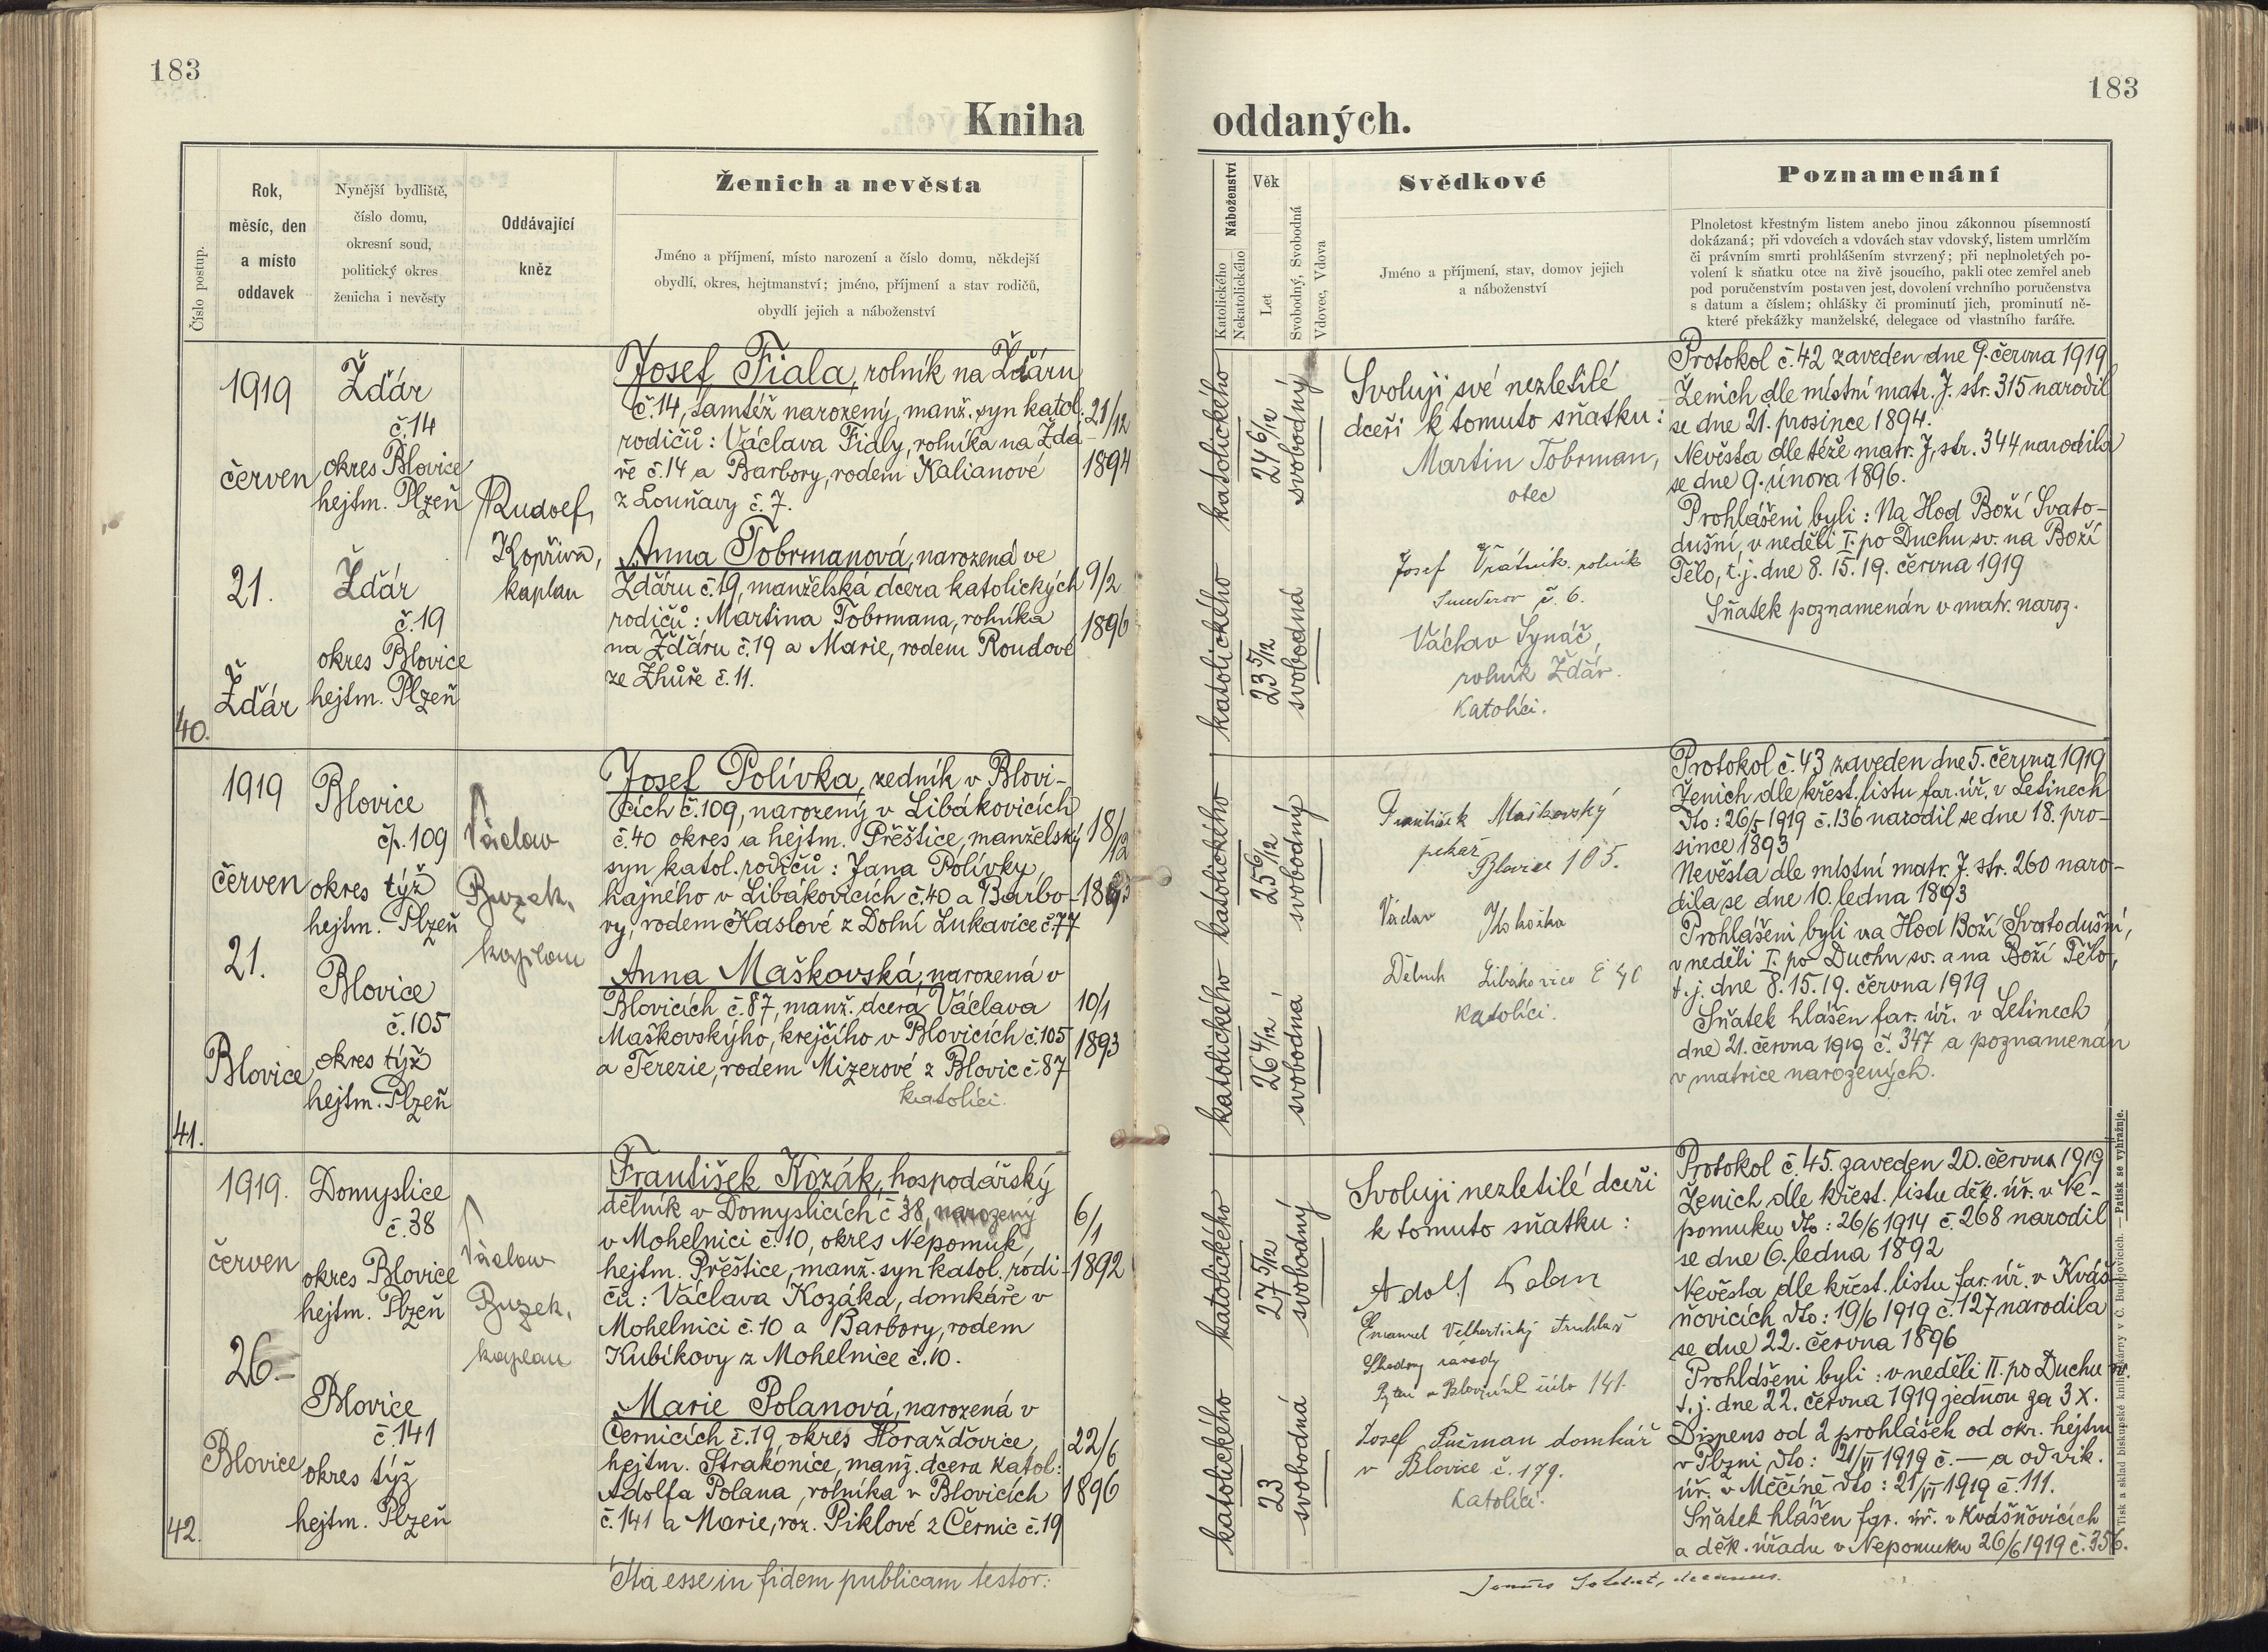 183
183
Kniha oddaných.
Číslo postup.
Rok,
měsíc, den
a místo
oddavek
Nynější bydliště,
číslo domu,
okresní soud,
politický okres
ženicha i nevěsty
Oddávající
kněz
Ženich a nevěsta
Jméno a příjmení, místo narození a číslo domu, někdejší
obydlí, okres, hejtmanství; jméno, příjmení a stav rodičů,
obydlí jejich a náboženství
Náboženství
Katolického
Nekatolického
Věk
Let
Svobodný, Svobodná
Vdovec, Vdova
Svědkové
Jméno a příjmení, stav, domov jejich
a náboženství
Poznamenání
Plnoletost křestným listem anebo jinou zákonnou písemností
dokázaná; při vdovcích a vdovách stav vdovský, listem umrlčím
či právním smrti prohlášením stvrzený; při neplnoletých po-
volení k sňatku otce na živě jsoucího, pakli otec zemřel aneb
pod poručenstvím postaven jest, dovolení vrchního poručenstva
s datum a číslem; ohlášky či prominutí jich, prominutí ně-
které překážky manželské, delegace od vlastního faráře.
40.
1919
červen
21.
Žďár
Žďár
č. 14
okres Blovice
hejtm. Plzeň
Žďár
č. 19
okres Blovice
hejtm. Plzeň
Rudolf
Kopřiva,
kaplan
Josef Fiala, rolník na Žďáru
č. 14, tamtéž narozený, manž. syn katol.
rodičů: Václava Fialy, rolníka na Žďá-
ře č. 14 a Barbory, rodem Kalianové
z Louňavy č. 7.
21/12
1894
Anna Tobrmanová, narozená ve
Žďáru č. 19, manželská dcera katolických
rodičů: Martina Tobrmana, rolníka
na Žďáru č. 19 a Marie, rodem Roudové
ze Zhůře č. 11.
9/2
1896
katolického
24 6/12
svobodný
katolického
23 5/12
svobodná
Svoluji své nezletilé
dceři k tomuto sňatku:
Martin Tobrman,
otec
Josef Vrátník rolník
č. 6.
Václav Synáč,
rolník Žďár.
Katolíci.
Protokol č. 42 zaveden dne 9. června 1919
Ženich dle místní matr. J. str. 315 narodil
se dne 21. prosince 1894.
Nevěsta dle téže matr. J, str. 344 narodila
se dne 9. února 1896.
Prohlášeni byli: Na Hod Boží Svato-
dušní, v neděli I. po Duchu sv. na Boží
Tělo, t. j. dne 8. 15. 19. června 1919
Sňatek poznamenán v matr. naroz.
41.
1919
červen
21.
Blovice
Blovice
čp. 109
okres týž
hejtm. Plzeň
Blovice
č. 105
okres týž
hejtm. Plzeň
Václav
Buzek,
kaplan
Josef Polívka, zedník v Blovi-
cích č. 109, narozený v Libákovicích
č. 40 okres a hejtm. Přeštice, manželský
syn katol. rodičů: Jana Polívky,
hajného v Libákovicích č. 40 a Barbo-
ry, rodem Kaslové z Dolní Lukavice č. 77
18/12
1893
Anna Maškovská, narozená v
Blovicích č. 87, manž. dcera Václava
Maškovskýho, krejčího v Blovicích č. 105
a Terezie, rodem Mizerové z Blovic č. 87
katolíci.
10/1
1893
katolického
25 6/12
svobodný
katolického
26 4/12
svobodná
František Maškovský
pekař
Blovice 105.
Václav
Dělník Libákovice č 40
Katolíci.
Protokol č. 43 zaveden dne 5. června 1919
Ženich dle křest. listu far. úř. v Letinech
dto: 26/5 1919 č. 136 narodil se dne 18. pro-
since 1893
Nevěsta dle místní matr. J. str. 260 naro-
dila se dne 10. ledna 1893
Prohlášeni byli na Hod Boží Svatodušní,
v neděli I. po Duchu sv. a na Boží Tělo,
t. j. dne 8. 15. 19. června 1919
Sňatek hlášen far. úř. v Letinech
dne 21. června 1919 č. 347 a poznamenán
v matrice narozených.
42.
1919.
červen
26.
Blovice
Domyslice
č. 38
okres Blovice
hejtm. Plzeň
Blovice
č. 141
okres týž
hejtm. Plzeň
Václav
Buzek,
kaplan
František Kozák, hospodářský
dělník v Domyslicích č 38, narozený
v Mohelnici č. 10, okres Nepomuk,
hejtm. Přeštice, manž. syn katol. rodi-
čů: Václava Kozáka, domkáře v
Mohelnici č. 10 a Barbory, rodem
Kubíkovy z Mohelnice č. 10.
6/1
1892
Marie Polanová, narozená v
Černicích č. 19, okres Horažďovice,
hejtm. Strakonice, manž. dcera katol:
Adolfa Polana, rolníka v Blovicích
č. 141 a Marie, roz. Piklové z Černic č. 19
22/6
1896
katolického
27 5/12
svobodný
katolického
23
svobodná
Svoluji nezletilé dceři
k tomuto sňatku:
Adolf Polan
Emanuel Velhartický truhlář
Škodovy závody
číslo 141.
Josef Pušman domkář
v Blovice č. 179.
Katolíci.
Protokol č. 45. zaveden 20. června 1919
Ženich dle křest. listu děk. úř. v Ne-
pomuku dto: 26/6 1914 č. 268 narodil
se dne 6. ledna 1892
Nevěsta dle křest. listu far. úř. v Kváš-
ňovicích dto: 19/6 1919 č. 127 narodila
se dne 22. června 1896
Prohlášeni byli: v neděli II. po Duchu sv.
t. j. dne 22. června 1919 jednou za 3 x.
Dispens od 2 prohlášek od okr. hejtm.
v Plzni dto: 21/VI 1919 č. — a od vik.
úř. v Měčíně dto: 21/VI 1919 č. 111.
Sňatek hlášen far. úř. v Kvášňovicích
a děk. úřadu v Nepomuku 26/6 1919 č. 356.
Ita esse in fidem publicam testor:
decanus.
Tisk a sklad biskupské knihtiskárny v Č. Budějovicích. — Patisk se vyhražuje.